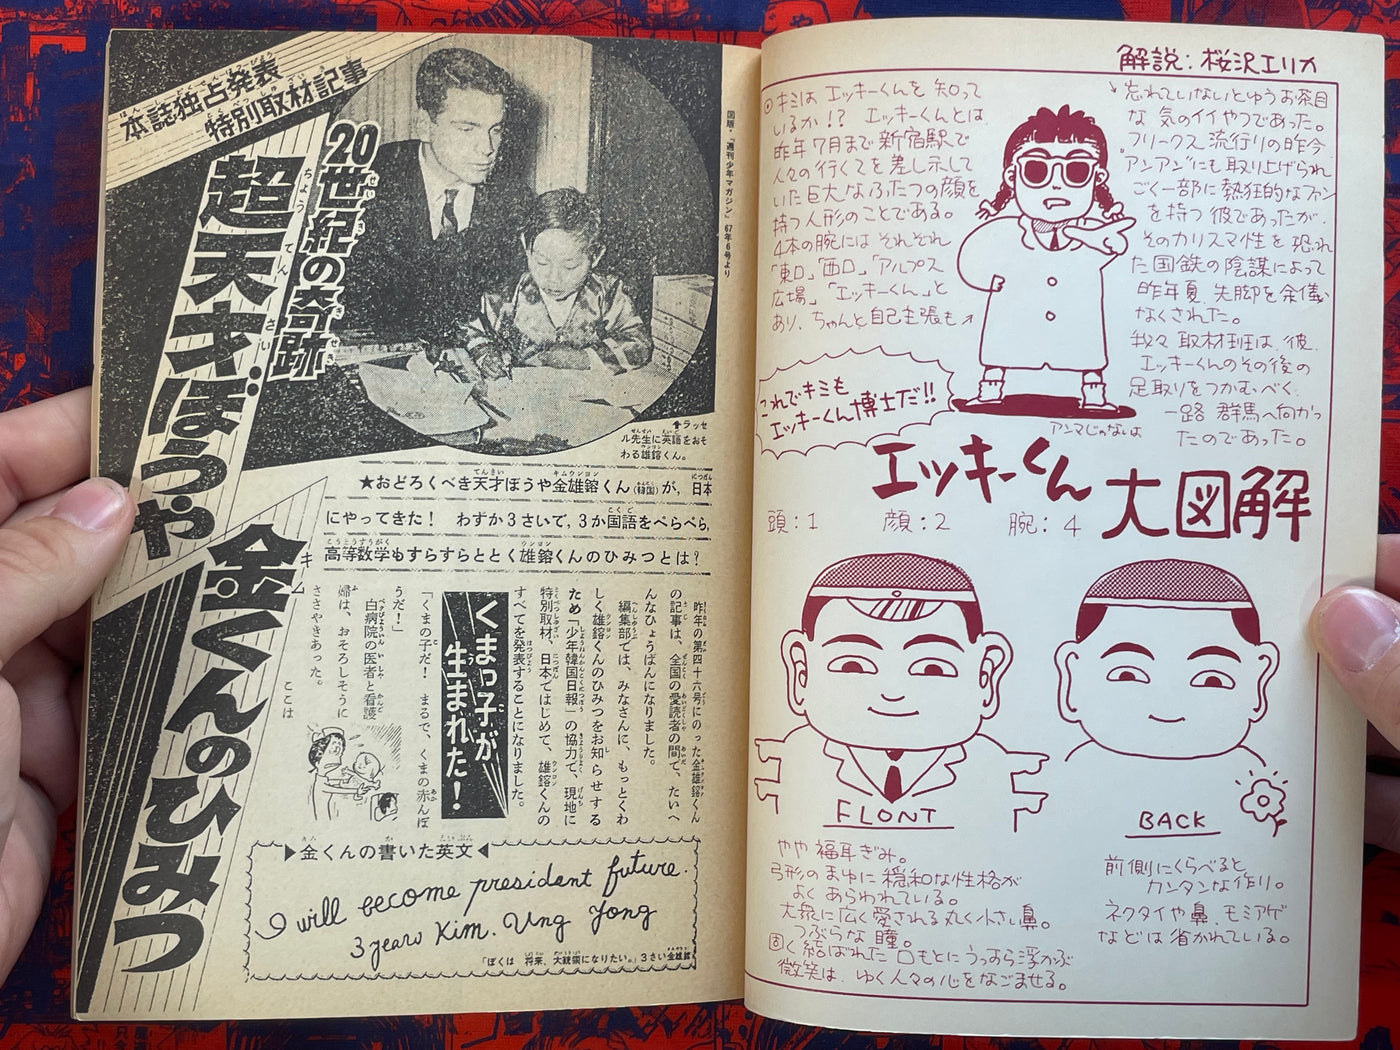 本誌独占発表
特別取材記事
20世紀の奇跡
超天才ぼうや
金くんのひみつ
図版・「週刊少年マガジン」67年6号より
↑ラッセ
ル先生に英語をおそ
わる雄鎔くん。
★おどろくべき天才ぼうや金雄鎔くん(韓国)が,日本
にやってきた! わずか3さいで,3か国語をぺらぺら,
高等数学もすらすらととく雄鎔くんのひみつとは?
昨年の第四十六号にのった金雄鎔くん
の記事は、全国の愛読者の間で、たいへ
んなひょうばんになりました。
編集部では、みなさんに、もっとくわ
しく雄鎔くんのひみつをお知らせする
ため「少年韓国日報」の協力で、現地に
特別取材、日本ではじめて、雄鎔くんの
すべてを発表することになりました。
くまっ子が
生まれた!
「くまの子だ! まるで、くまの赤んぼ
うだ!」
白病院の医者と看護
婦は、おそろしそうに
ささやきあった。
ここは
▶金くんの書いた英文◀
I will become president future.
3 years Kim. Ung Yong
「ぼくは 将来、大統領になりたい。」3さい金雄鎔
解説:桜沢エリカ
キミは エッキーくんを 知って
いるか!? エッキーくんとは、
昨年7月まで新宿駅で
人々の行くてを差し示して
いた巨大なふたつの顔を
持つ人形のことである。
4本の腕には それぞれ
「東口」「西口」「アルプス
広場」「エッキーくん」と
あり、ちゃんと自己主張も↗
↘忘れていないとゆうお茶目
な 気のイイやつであった。
フリークス流行りの昨今
"アンアン"にも取り上げられ
ごく一部に熱狂的なファン
を持つ彼であったが、
そのカリスマ性を恐れ
た国鉄の陰謀によって
昨年夏、失脚を余儀
なくされた。
我々取材班は、彼、
エッキーくんのその後の
足取りをつかむべく、
一路 群馬へ向かっ
たのであった。
アンマじゃないよ
これでキミも
エッキーくん博士だ!!
エッキーくん
大図解
頭:1 顔:2 腕:4
FLONT
BACK
やや福耳ぎみ。
弓形のまゆに穏和な性格が
よくあらわれている。
大衆に広く愛される丸く小さい鼻。
つぶらな瞳。
固く結ばれた口もとにうっすら浮かぶ
微笑は、ゆく人々の心をなごませる。
前側にくらべると
カンタンな作り。
ネクタイや鼻、モミアゲ
などは省かれている。